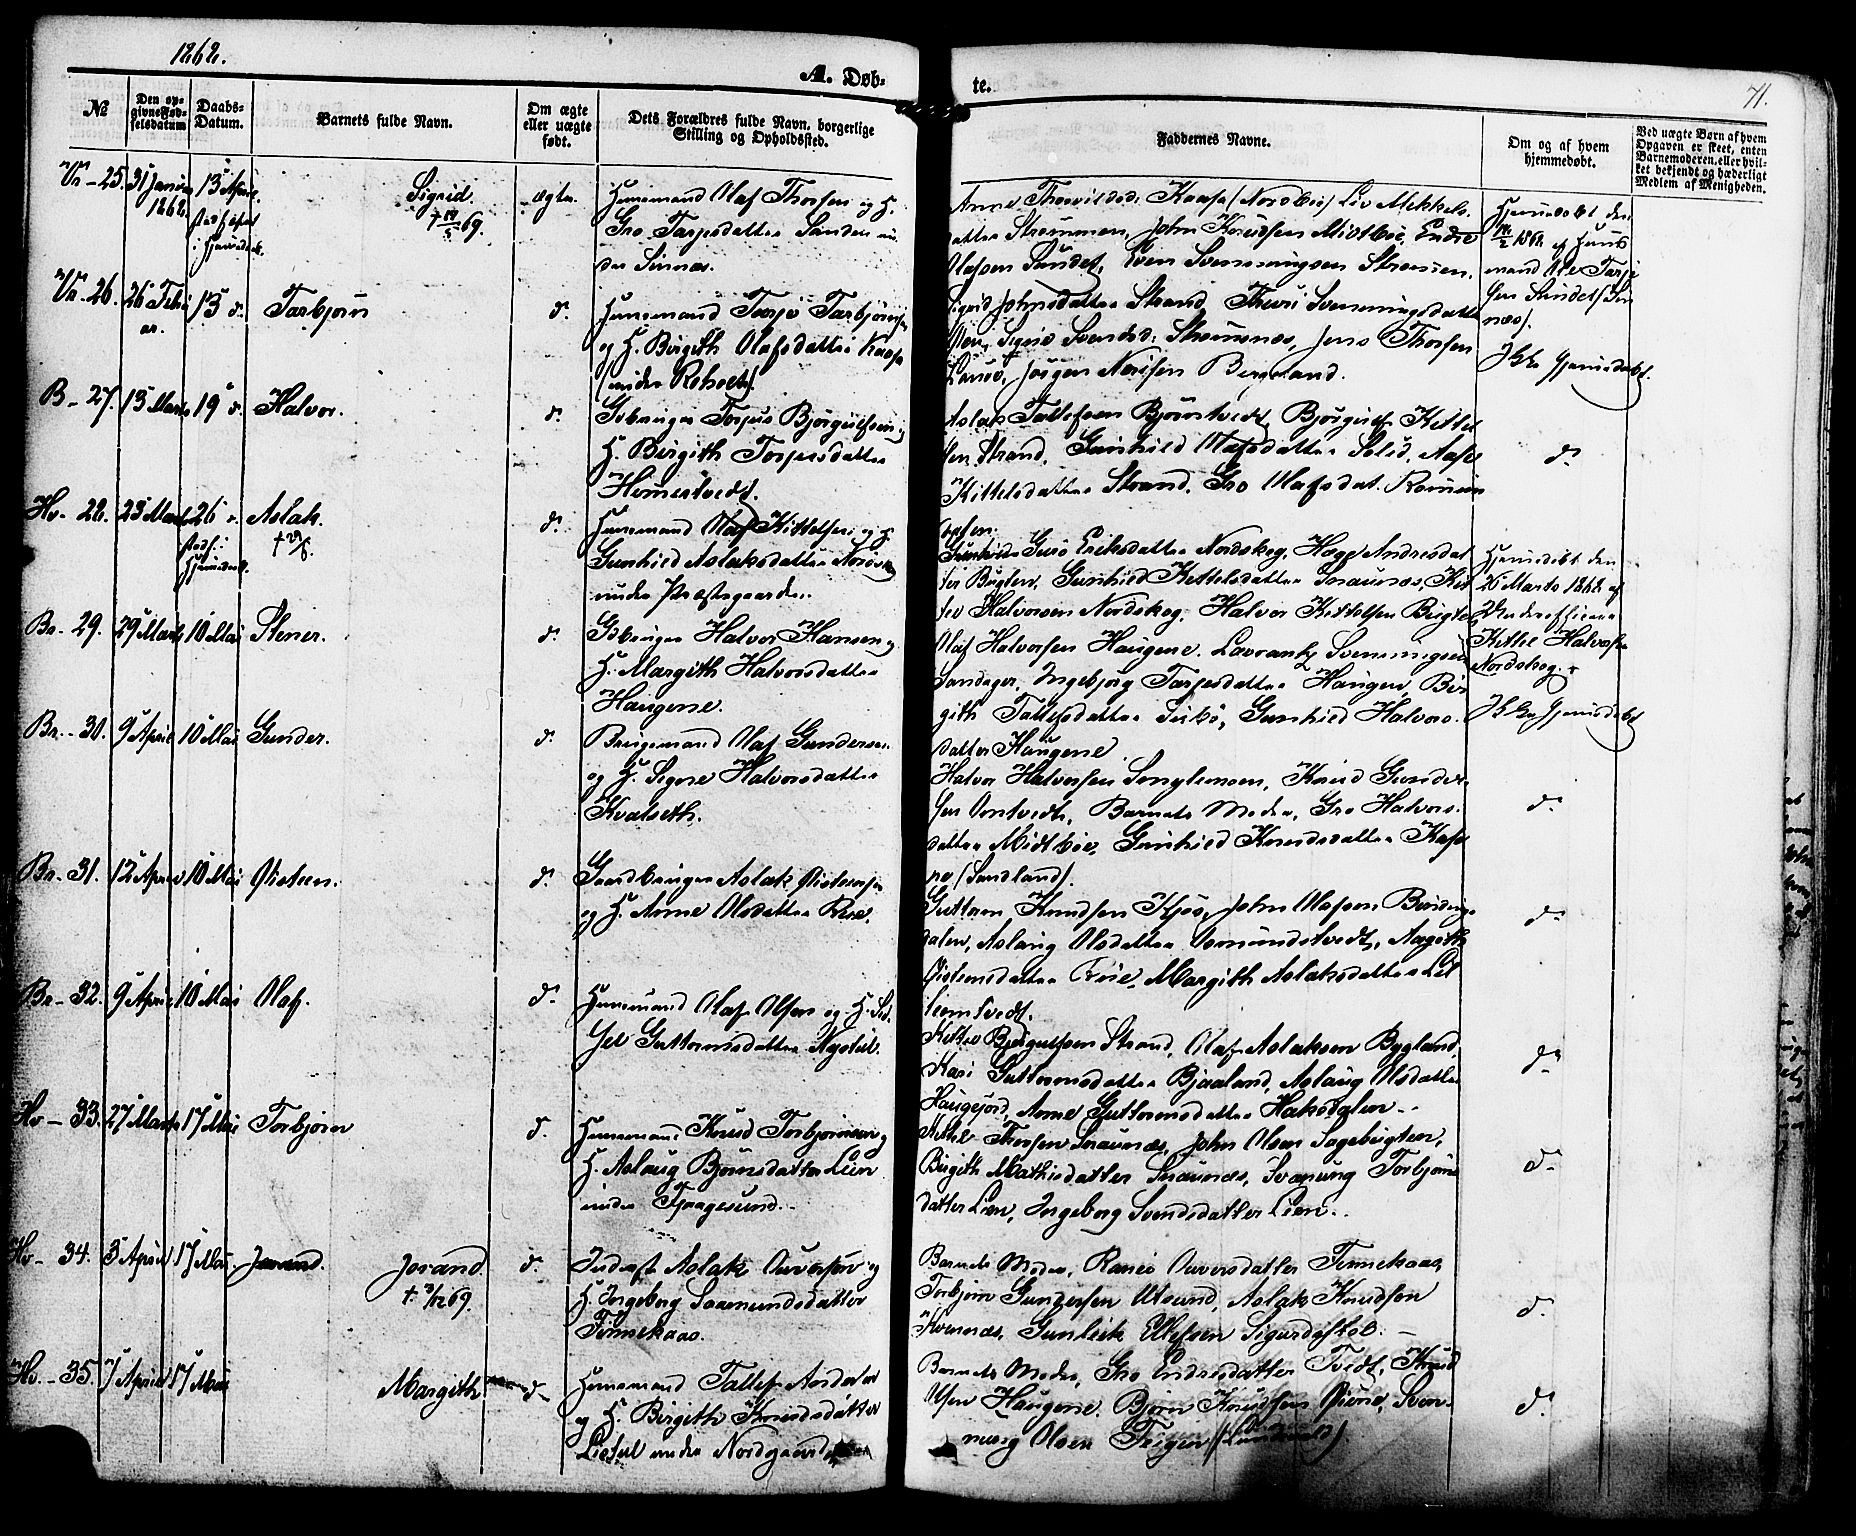 1862.
A. Døb-
te.
71.
№
Den op-
givne Fød-
selsdatum
Daabs-
Datum.
Barnets fulde Navn.
Om ægte
eller uægte
født.
Dets Forældres fulde Navn, borgerlige
Stilling og Opholdssted.
Faddernes Navne.
Om og af hvem
hjemmedøbt.
Ved uægte Børn af hvem
Opgaven er skeet, enten
Barnemoderen, eller hvil-
ket bekjendt og hæderligt
Medlem af Menigheden.
Vr - 25. 31 Januar 13 April
1862
Sigrid
ægte.
Huusmand Olaf Thorsen og H.
Gro Tarjesdatter Sanden un
der Sinnæs.
Kaasa (Nordbø) Liv Mikkels
datter Strommen, John Knudsen Midtbøe, Endre
Olafsen Sundet, Even Svenningsen Strommen.
Hjemmedøbt den
1862 af Huus
mand Ole Tarje
sen Sundet (Sin
næs).
Vr - 26. 26 Febr 13 d.
ar.
Tarbjørn
d.
Huusmand Tarje Tarbjørnsen
og H. Birgith Olafsdatter Kaasa
(under Roholt).
Sigrid Johnsdatter Strand, Thuri Svenningsdatter
Sigrid Svenisd: Strømsnes, Jens Thorsen
Jørgen Nerisen Bergland.
Ikke Hjemmedøbt.
B - 27. 13 Marts 19 d.
Halvor.
d.
Gbruger Torjus Bjørgulfsen og
H. Birgith Torjersdatter
Homestvedt.
Aslak Tallefsen Bjørntvedt, Bjørgulf Kittel
sen Strand, Gunhild Olafsdatter Solid, Aase
Kittelsdatter Strand, Gro Olafsdat. Romun
d.
Hv - 28. 23 Marts 26 d.
Aslak.
d.
Huusmand Olaf Kittelsen og H.
Gunhild Aslaksdatter
under Præstegaarden.
Guro Eriksdatter Nordskog, Hæge Andresdat
ter Bugten, Gunhild Kittelsdatter Snaunæs, Kit
tel Halvorsen Nordskog, Halvor Kittelsen Bugten
Hjemmedøbt den
26 Marts 1862 af
Underofficeer
Kittel Halvorsen
Nordskog.
Br - 29. 29 Marts 10 Mai
Stener.
d.
Gbruger Halvor Hansen og
H. Margith Halvorsdatter
Haugene.
Olaf Halvorsen Haugene, Lavrants Svenningsen
Sandager, Ingebjørg Tarjesdatter Haugen, Bir
gith Tallefsdatter Gunhild Halvors
datter Haugene.
Ikke Hjemmedøbt
Br - 30. 9 April 10 Mai
Gunder.
d.
Brugsmand Olaf Gundersen
og H. Signe Halvorsdatter
Kvalseth.
Halvor Halvorsen Knud Gunder
sen Omtvedt, Barnets Moder, Gro Halvors
datter Midtbøe, Gunhild Knudsdatter Kaasa
ne (Sandland).
d.
Br - 31. 12 April 10 Mai
Østeen.
d.
Gaardbruger Aslak Østensen
og H. Anne Olsdatter Roe.
Guttorm Knudsen Kjøs, John Olafsen
dalen, Aslaug Olsdatter Omundstvedt, Aagoth
Østensdatter Roe, Margith Aslaksdatter Lil
leomtvedt.
d.
Br - 32. 9 April 10 Mai
Olaf.
d.
Huusmand Olaf Olsen og H. Sid
sel Guttormsdatter Nystul.
Kittel Bjørgulfsen Strand, Olaf Aslaksen Bygland,
Kari Guttormsdatter Bjaaland, Aslaug Olsdatter
Haugejord, Anne Guttormsdatter Haksdalen.
d.
Hv - 33. 27 Marts 17 Mai
Torbjørn
d.
Huusmand Knud Torbjørnsen og
H. Aslaug Bjørnsdatter Lien
under Fjaagesund.
Mikkel Thorsen Snaunæs, John Olsen Sagebugten,
Birgith Mathisdatter Snaunæs, Svanung Torbjørns
datter Lien, Ingeborg Svendsdatter Lien.
d.
Hv - 34. 5 April 17 Mai
Jorand.
Jorand.
† 3/12 69.
d.
Inderst Aslak Auversen og
H. Ingeborg Saamundsdatter
Finnekaas.
Barnets Moder, Ranei Auversdatter Finnekaas,
Torbjørn Gundersen Utsund, Aslak Knudsen
Kvennæs, Gunleik Ellefsen Sigurdsskob.
d.
Hv. - 35. 7 April 17 Mai
Margith
d.
Huusmand Tallef Andersen
og H. Birgith Knudsdatter
Listul under Nordgaarden
Barnets Moder, Gro Endresdatter Tvedt, Knud
Olsen Haugene, Bjørn Knudsen Øiene, Sven-
nung Olsen Teigen (Lundevald)
d.